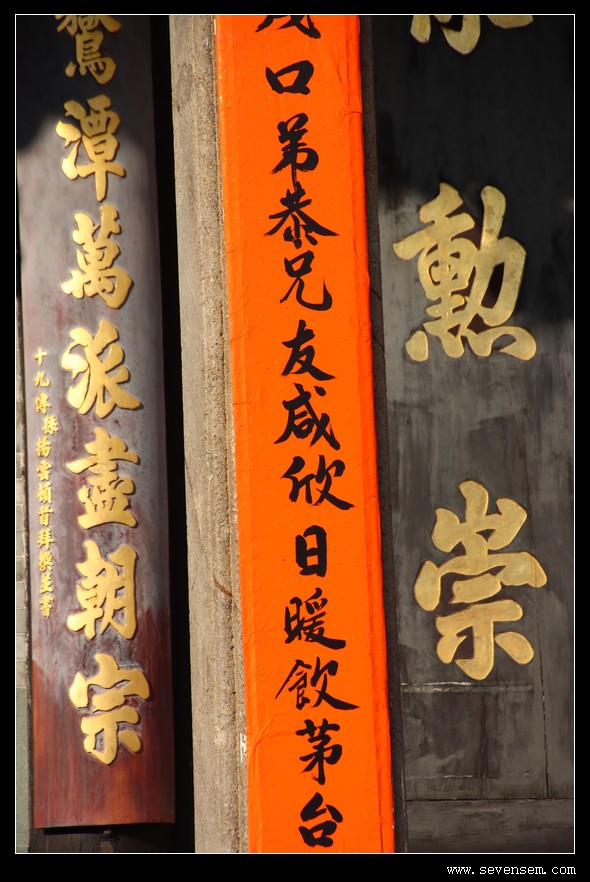 勳崇
口弟恭兄友咸欣日暖飲茅台
潭萬派盡朝宗
十九傳孫揚雲頓首拜撰並書
www.sevensem.com